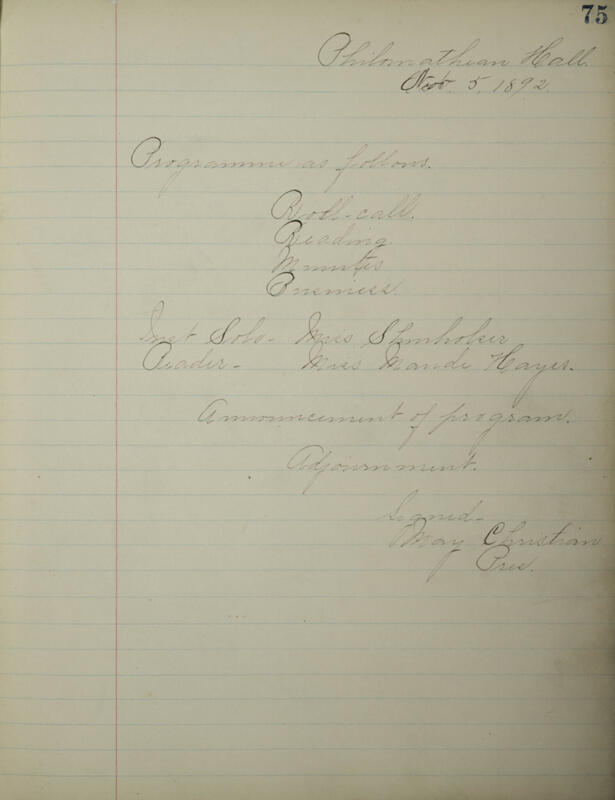 75
Philomathean Hall.
Nov. 5, 1892.
Programme as follows.
Roll-call.
Reading
Minutes
Business.
Inst Solo - Miss Shinholser
Reader - Miss Maude Hayes.
Announcement of program.
Adjournment.
Signed-
May Christian
Pres.